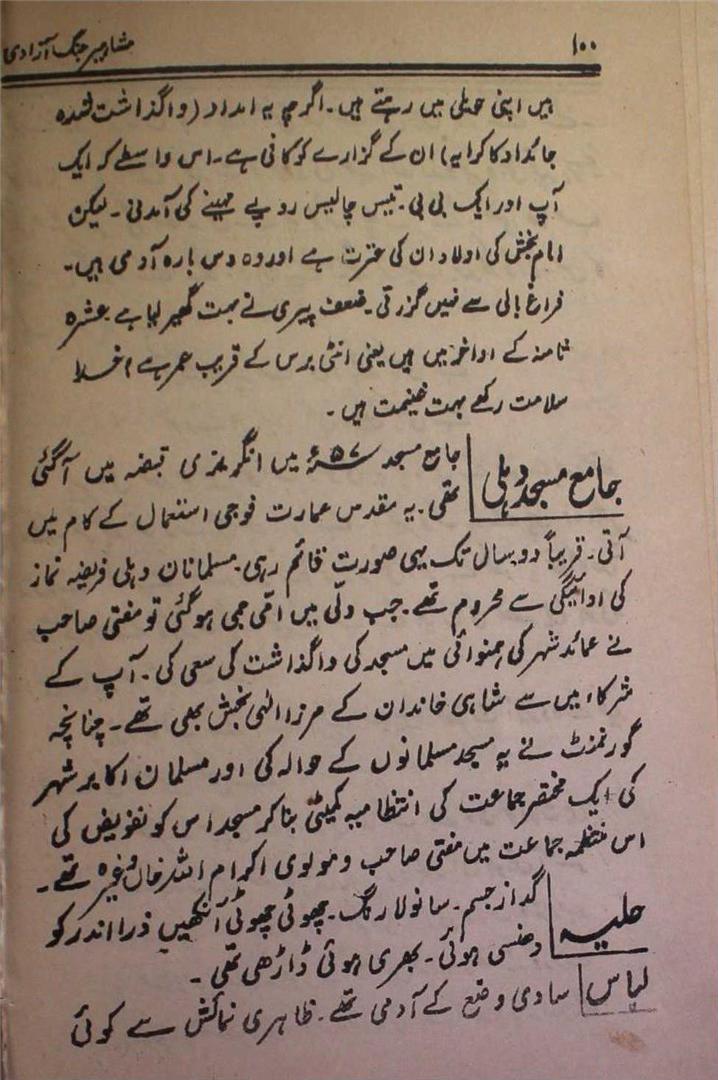 ۱۰۰
مشاہیر جنگ آزادی
ہیں اپنی حویلی میں رہتے ہیں۔ اگرچہ یہ امداد (واگذاشت شدہ
جائداد کا کرایہ) ان کے گزارے کو کافی ہے۔ اس واسطے کہ ایک
آپ اور ایک بی بی۔ تیس چالیس روپے مہینے کی آمدنی۔ لیکن
امام بخش کی اولاد ان کی عترت ہے اور وہ دس بارہ آدمی ہیں۔
فراغ بالی سے نہیں گزرتی۔ ضعف پیری نے بہت گھیر لیا ہے عشرہ
ثامنہ کے اواخر میں ہیں یعنی اسّی برس کے قریب عمر ہے خدا
سلامت رکھے بہت غنیمت ہیں۔
جامع مسجد دہلی
جامع مسجد ۵۷ء میں انگریزی قبضہ میں آگئی
تھی۔ یہ مقدس عمارت فوجی استعمال کے کام میں
آتی۔ قریباً دو سال تک یہی صورت قائم رہی۔ مسلمانان دہلی فریضہ نماز
کی ادائیگی سے محروم تھے۔ جب دلّی میں امی جمی ہوگئی تو مفتی صاحب
نے عمائد شہر کی ہمنوائی میں مسجد کی واگذاشت کی سعی کی۔ آپ کے
شرکاء میں سے شاہی خاندان کے مرزا الٰہی بخش بھی تھے۔ چنانچہ
گورنمنٹ نے یہ مسجد مسلمانوں کے حوالہ کی اور مسلمان اکابر شہر
کی ایک مختصر جماعت کی انتظامیہ کمیٹی بنا کر مسجد اس کو تفویض کی
اس منتظمہ جماعت میں مفتی صاحب و مولوی اکرام اللہ خاں وغیرہ تھے۔
حلیہ
گداز جسم۔ سانولا رنگ۔ چھوٹی چھوٹی آنکھیں ذرا اندر کو
دھنسی ہوئی۔ بھری ہوئی ڈاڑھی تھی۔
لباس
سادی وضع کے آدمی تھے۔ ظاہری نمائش سے کوئی